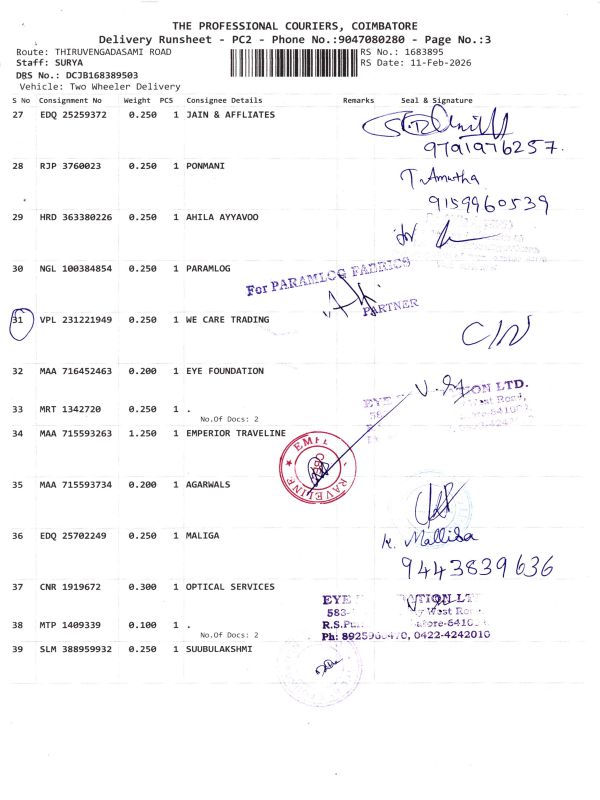 THE PROFESSIONAL COURIERS, COIMBATORE
Delivery Runsheet - PC2 - Phone No.:9047080280 - Page No.:3
Route: THIRUVENGADASAMI ROAD RS No.: 1683895
Staff: SURYA RS Date: 11-Feb-2026
DBS No.: DCJB168389503
Vehicle: Two Wheeler Delivery
S No Consignment No Weight PCS Consignee Details Remarks Seal & Signature
27 EDQ 25259372 0.250 1 JAIN & AFFLIATES
9791976257.
28 RJP 3760023 0.250 1 PONMANI T. Amutha
9159960539
29 HRD 363380226 0.250 1 AHILA AYYAVOO for
30 NGL 100384854 0.250 1 PARAMLOG
For PARAMLOG FABRICS
PARTNER
31 VPL 231221949 0.250 1 WE CARE TRADING
C/N
32 MAA 716452463 0.200 1 EYE FOUNDATION
EYE ION LTD.
West Road,
33 MRT 1342720 0.250 1 .
No.Of Docs: 2
34 MAA 715593263 1.250 1 EMPERIOR TRAVELINE
35 MAA 715593734 0.200 1 AGARWALS
36 EDQ 25702249 0.250 1 MALIGA K. Mallisa
9443839636
37 CNR 1919672 0.300 1 OPTICAL SERVICES
EYE ATION LT
583- West Roa
38 MTP 1409339 0.100 1 .
R.S.Pu ore-6410
No.Of Docs: 2
0422-4242010
39 SLM 388959932 0.250 1 SUUBULAKSHMI